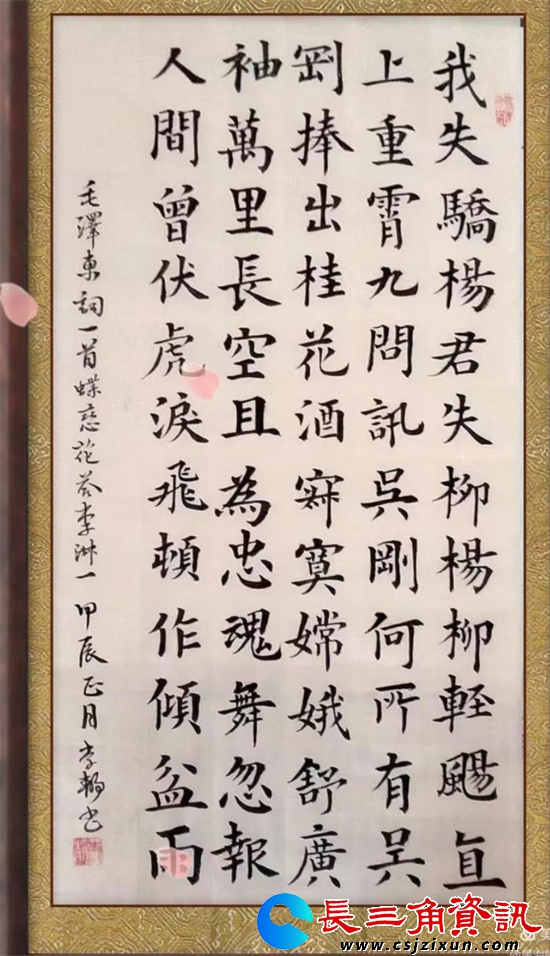 我失驕楊君失柳楊柳輕颺直
上重霄九問訊吳剛何所有吳
剛捧出桂花酒寂寞嫦娥舒廣
袖萬里長空且為忠魂舞忽報
人間曾伏虎淚飛頓作傾盆雨
毛澤東詞一首蝶恋花答李淑一甲辰正月李书
長三角資訊
www.csjzixun.com